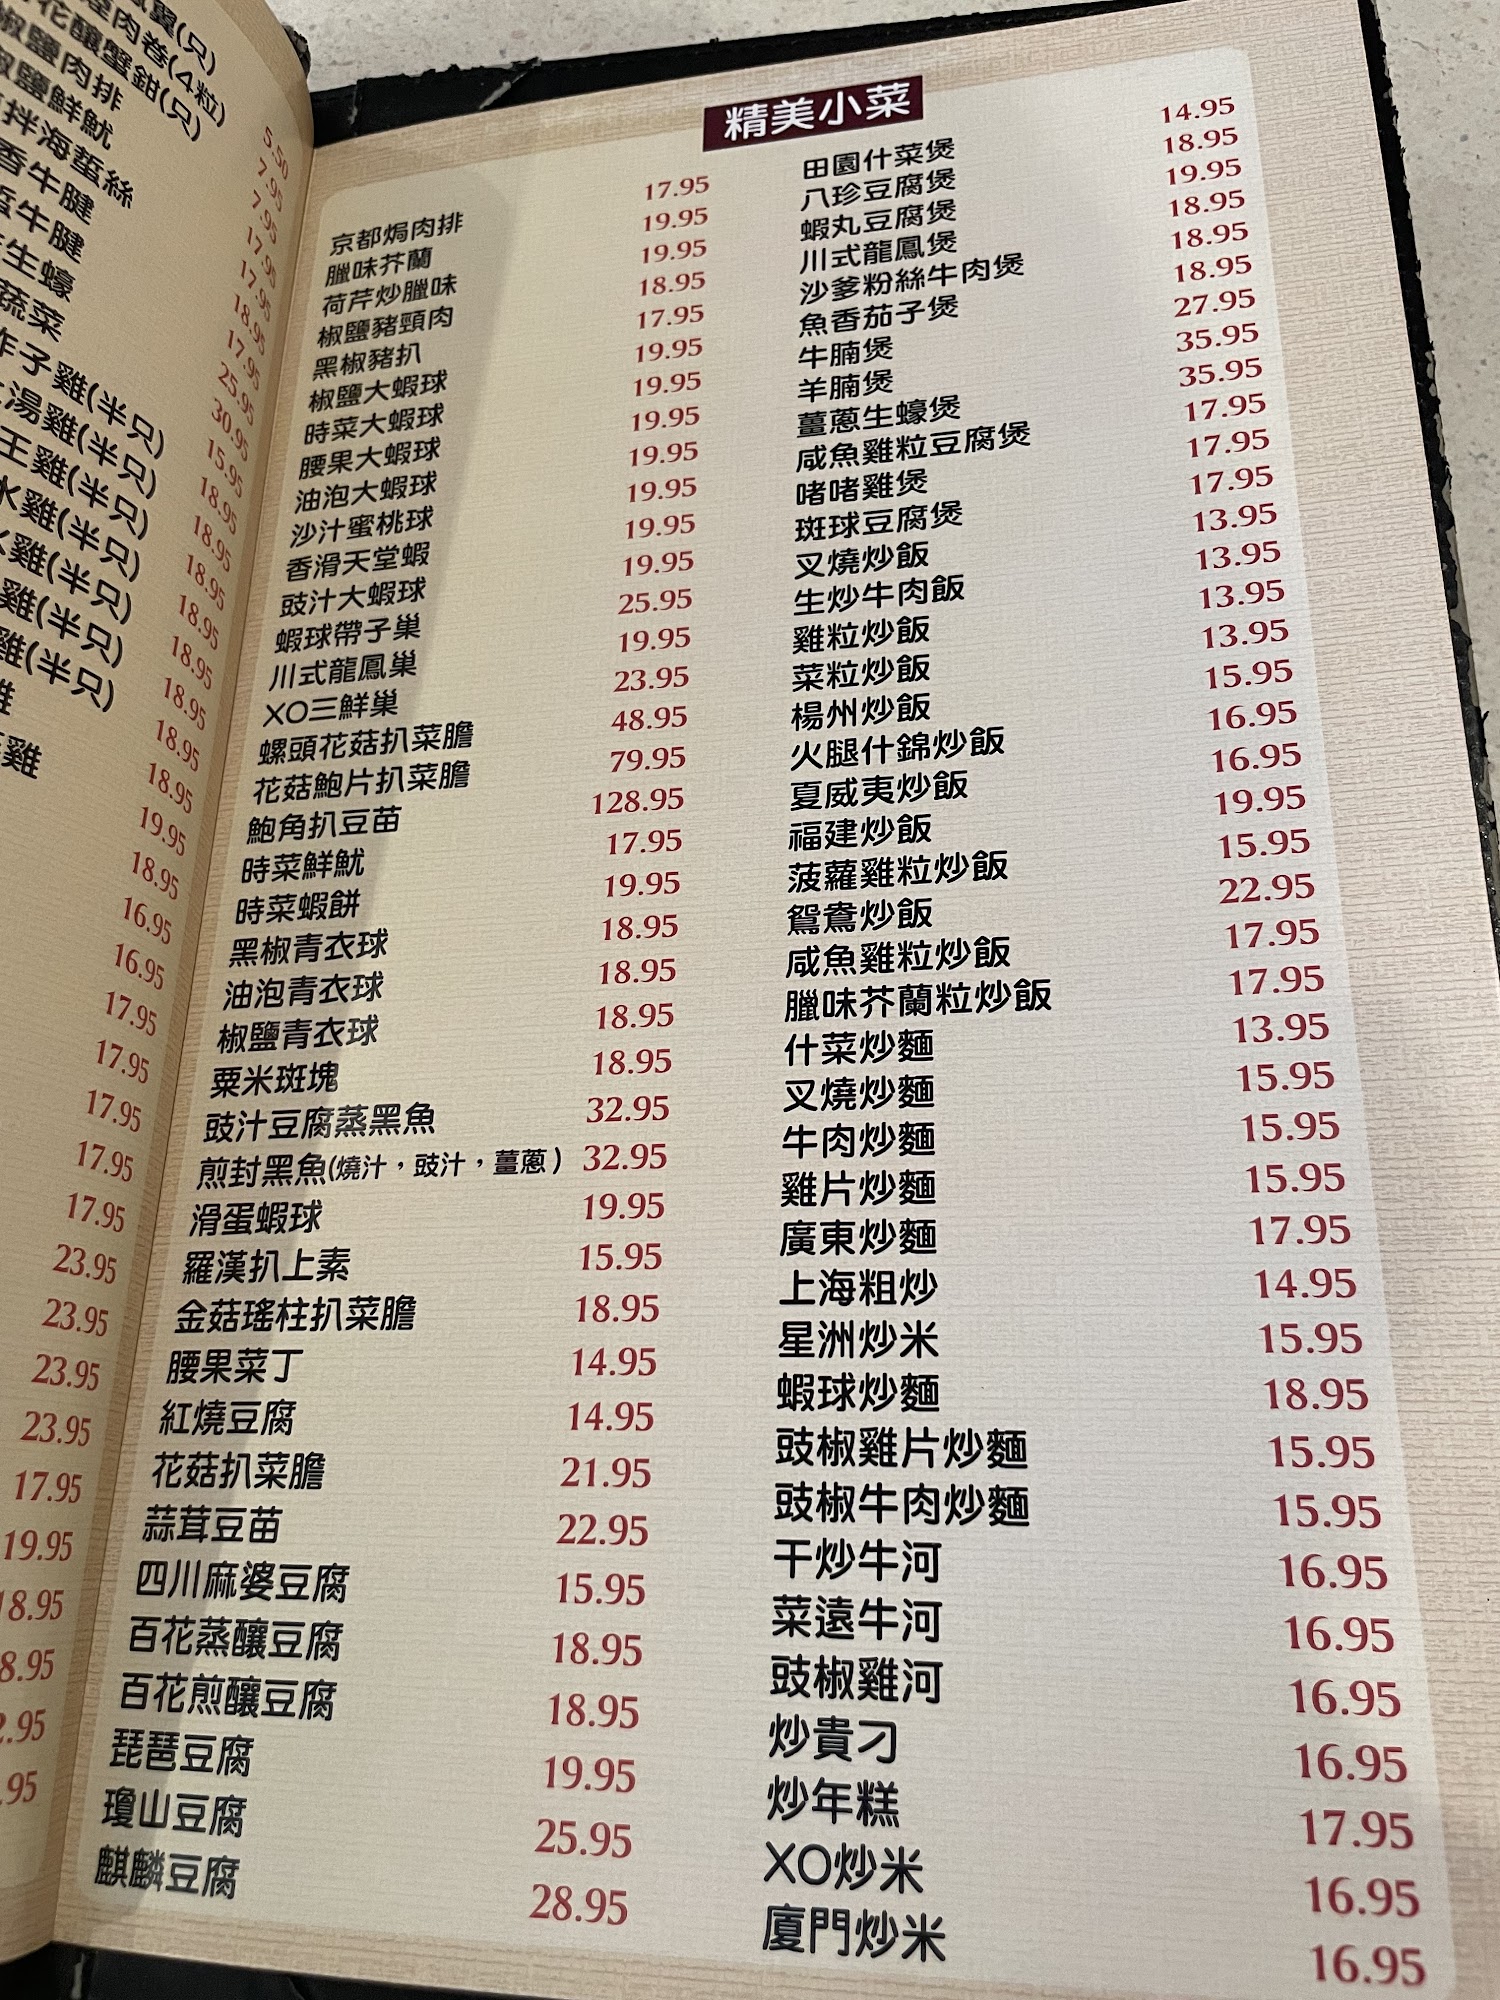 翼(只)
肉卷(4粒)
花釀蟹鉗(只)
椒鹽肉排
椒鹽鮮魷
拌海蜇絲
香牛腱
牛腱
生蠔
蔬菜
炸子雞(半只)
湯雞(半只)
王雞(半只)
水雞(半只)
雞(半只)
雞(半只)
雞(半只)
雞
雞
5.50
7.95
7.95
17.95
17.95
18.95
17.95
25.95
30.95
15.95
18.95
18.95
18.95
18.95
18.95
18.95
18.95
18.95
19.95
18.95
16.95
16.95
17.95
17.95
17.95
17.95
17.95
23.95
23.95
23.95
23.95
17.95
19.95
18.95
8.95
2.95
.95
精美小菜
京都焗肉排 17.95
臘味芥蘭 19.95
荷芹炒臘味 19.95
椒鹽豬頸肉 18.95
黑椒豬扒 17.95
椒鹽大蝦球 19.95
時菜大蝦球 19.95
腰果大蝦球 19.95
油泡大蝦球 19.95
沙汁蜜桃球 19.95
香滑天堂蝦 19.95
豉汁大蝦球 19.95
蝦球帶子巢 25.95
川式龍鳳巢 19.95
XO三鮮巢 23.95
螺頭花菇扒菜膽 48.95
花菇鮑片扒菜膽 79.95
鮑角扒豆苗 128.95
時菜鮮魷 17.95
時菜蝦餅 19.95
黑椒青衣球 18.95
油泡青衣球 18.95
椒鹽青衣球 18.95
粟米斑塊 18.95
豉汁豆腐蒸黑魚 32.95
煎封黑魚(燒汁，豉汁，薑蔥) 32.95
滑蛋蝦球 19.95
羅漢扒上素 15.95
金菇瑤柱扒菜膽 18.95
腰果菜丁 14.95
紅燒豆腐 14.95
花菇扒菜膽 21.95
蒜茸豆苗 22.95
四川麻婆豆腐 15.95
百花蒸釀豆腐 18.95
百花煎釀豆腐 18.95
琵琶豆腐 19.95
瓊山豆腐 25.95
麒麟豆腐 28.95
田園什菜煲 14.95
八珍豆腐煲 18.95
蝦丸豆腐煲 19.95
川式龍鳳煲 18.95
沙爹粉絲牛肉煲 18.95
魚香茄子煲 18.95
牛腩煲 27.95
羊腩煲 35.95
薑蔥生蠔煲 35.95
咸魚雞粒豆腐煲 17.95
啫啫雞煲 17.95
斑球豆腐煲 17.95
叉燒炒飯 13.95
生炒牛肉飯 13.95
雞粒炒飯 13.95
菜粒炒飯 13.95
楊州炒飯 15.95
火腿什錦炒飯 16.95
夏威夷炒飯 16.95
福建炒飯 19.95
菠蘿雞粒炒飯 15.95
鴛鴦炒飯 22.95
咸魚雞粒炒飯 17.95
臘味芥蘭粒炒飯 17.95
什菜炒麵 13.95
叉燒炒麵 15.95
牛肉炒麵 15.95
雞片炒麵 15.95
廣東炒麵 17.95
上海粗炒 14.95
星洲炒米 15.95
蝦球炒麵 18.95
豉椒雞片炒麵 15.95
豉椒牛肉炒麵 15.95
干炒牛河 16.95
菜遠牛河 16.95
豉椒雞河 16.95
炒貴刁 16.95
炒年糕 17.95
XO炒米 16.95
廈門炒米 16.95